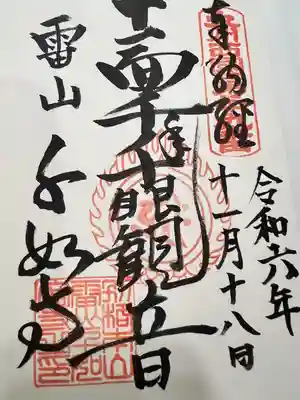 奉納経
令和六年
十一月十八日
十一面千手千眼観音
雷山
千如寺